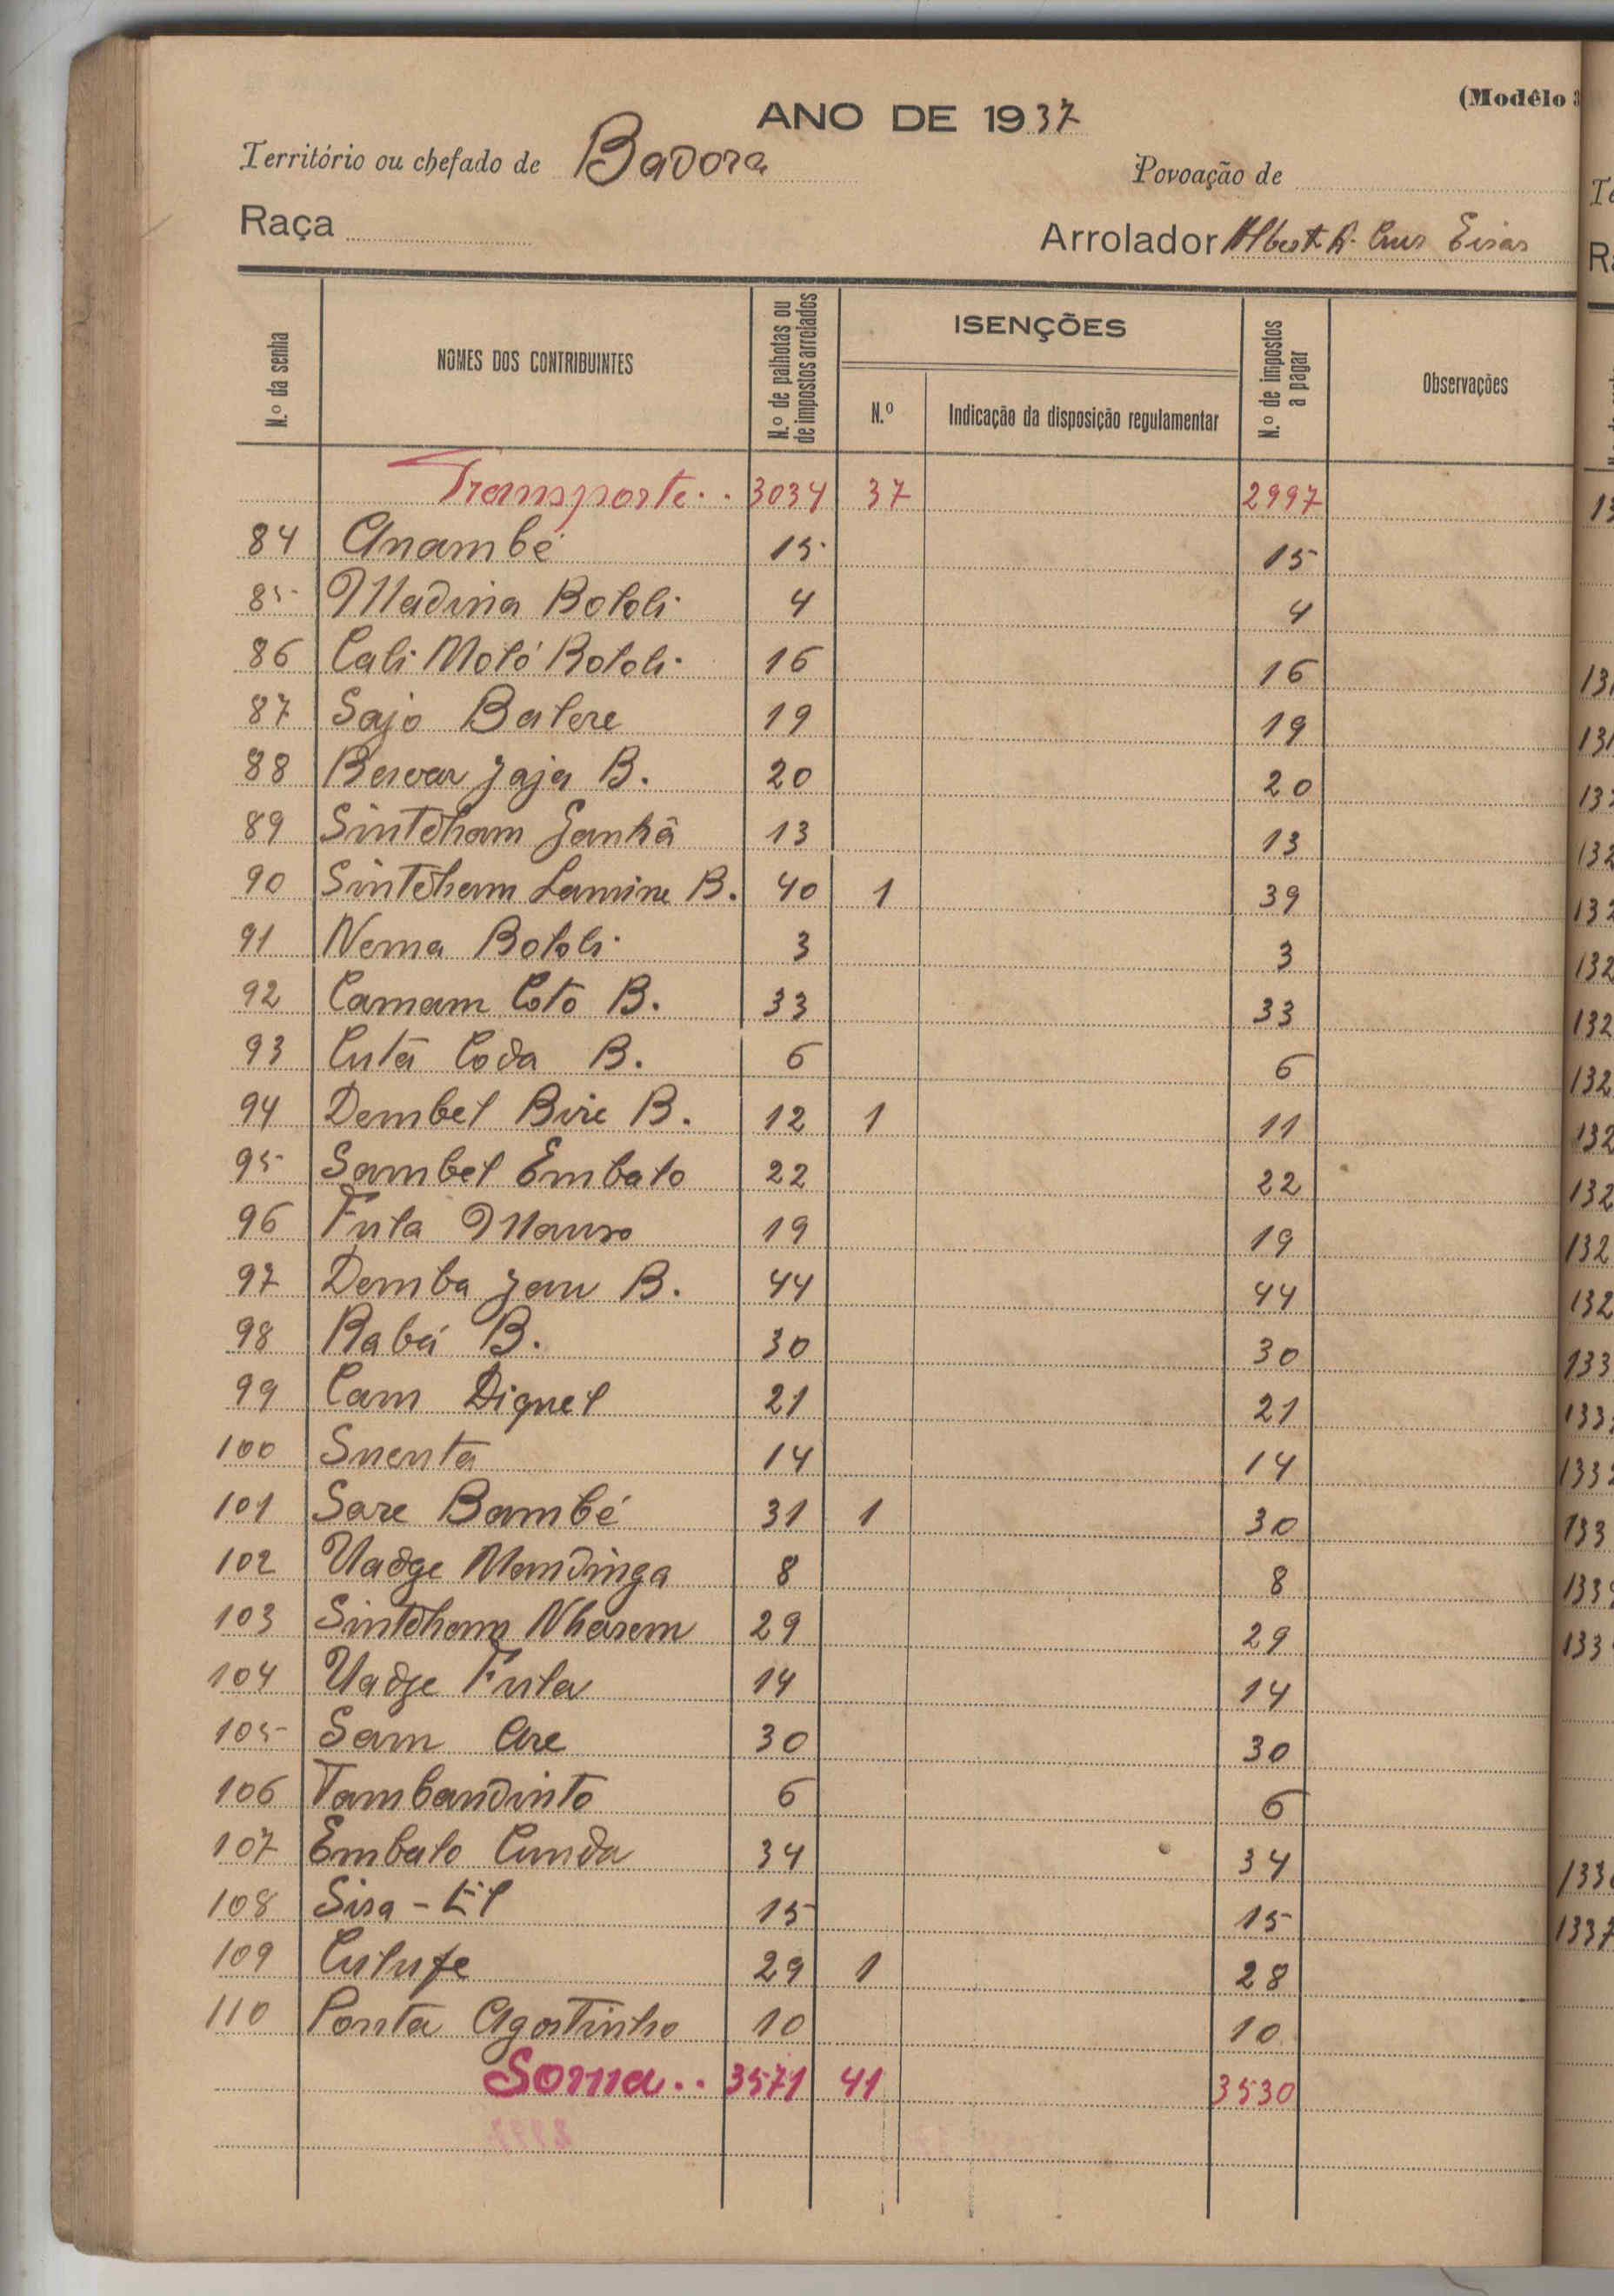 (Modêlo 3
ANO DE 1937
Território ou chefado de Badora Povoação de
Raça Arrolador Albert A. Cruz Eiras
N.º da senha NOMES DOS CONTRIBUINTES N.º de palhotas ou de impostos arrolados ISENÇÕES N.º de impostos a pagar Observações
N.º Indicação da disposição regulamentar
Transporte.. 3034 37 2997
84 Anambé 15 15
85 Madina Bololi 4 4
86 Cali Moló Bololi 16 16
87 Sajo Balere 19 19
88 Jaja B. 20 20
89 Sintcham Ganhã 13 13
90 Sintcham Lamine B. 40 1 39
91 Nema Bololi 3 3
92 Camam Coto B. 33 33
93 Cutã Coda B. 6 6
94 Dembel B. 12 1 11
95 Sambel Embalo 22 22
96 Fula Mauro 19 19
97 Demba Jau B. 44 44
98 Rabá B. 30 30
99 Cam Diguel 21 21
100 Suenta 14 14
101 Sare Bambé 31 1 30
102 Uadge Mandinga 8 8
103 Sintcham 29 29
104 Uadge Fula 14 14
105 Sam Are 30 30
106 Tambandinto 6 6
107 Embalo Cunda 34 34
108 15 15
109 Culufe 29 1 28
110 Ponta Agostinho 10 10
Soma.. 3571 41 3530